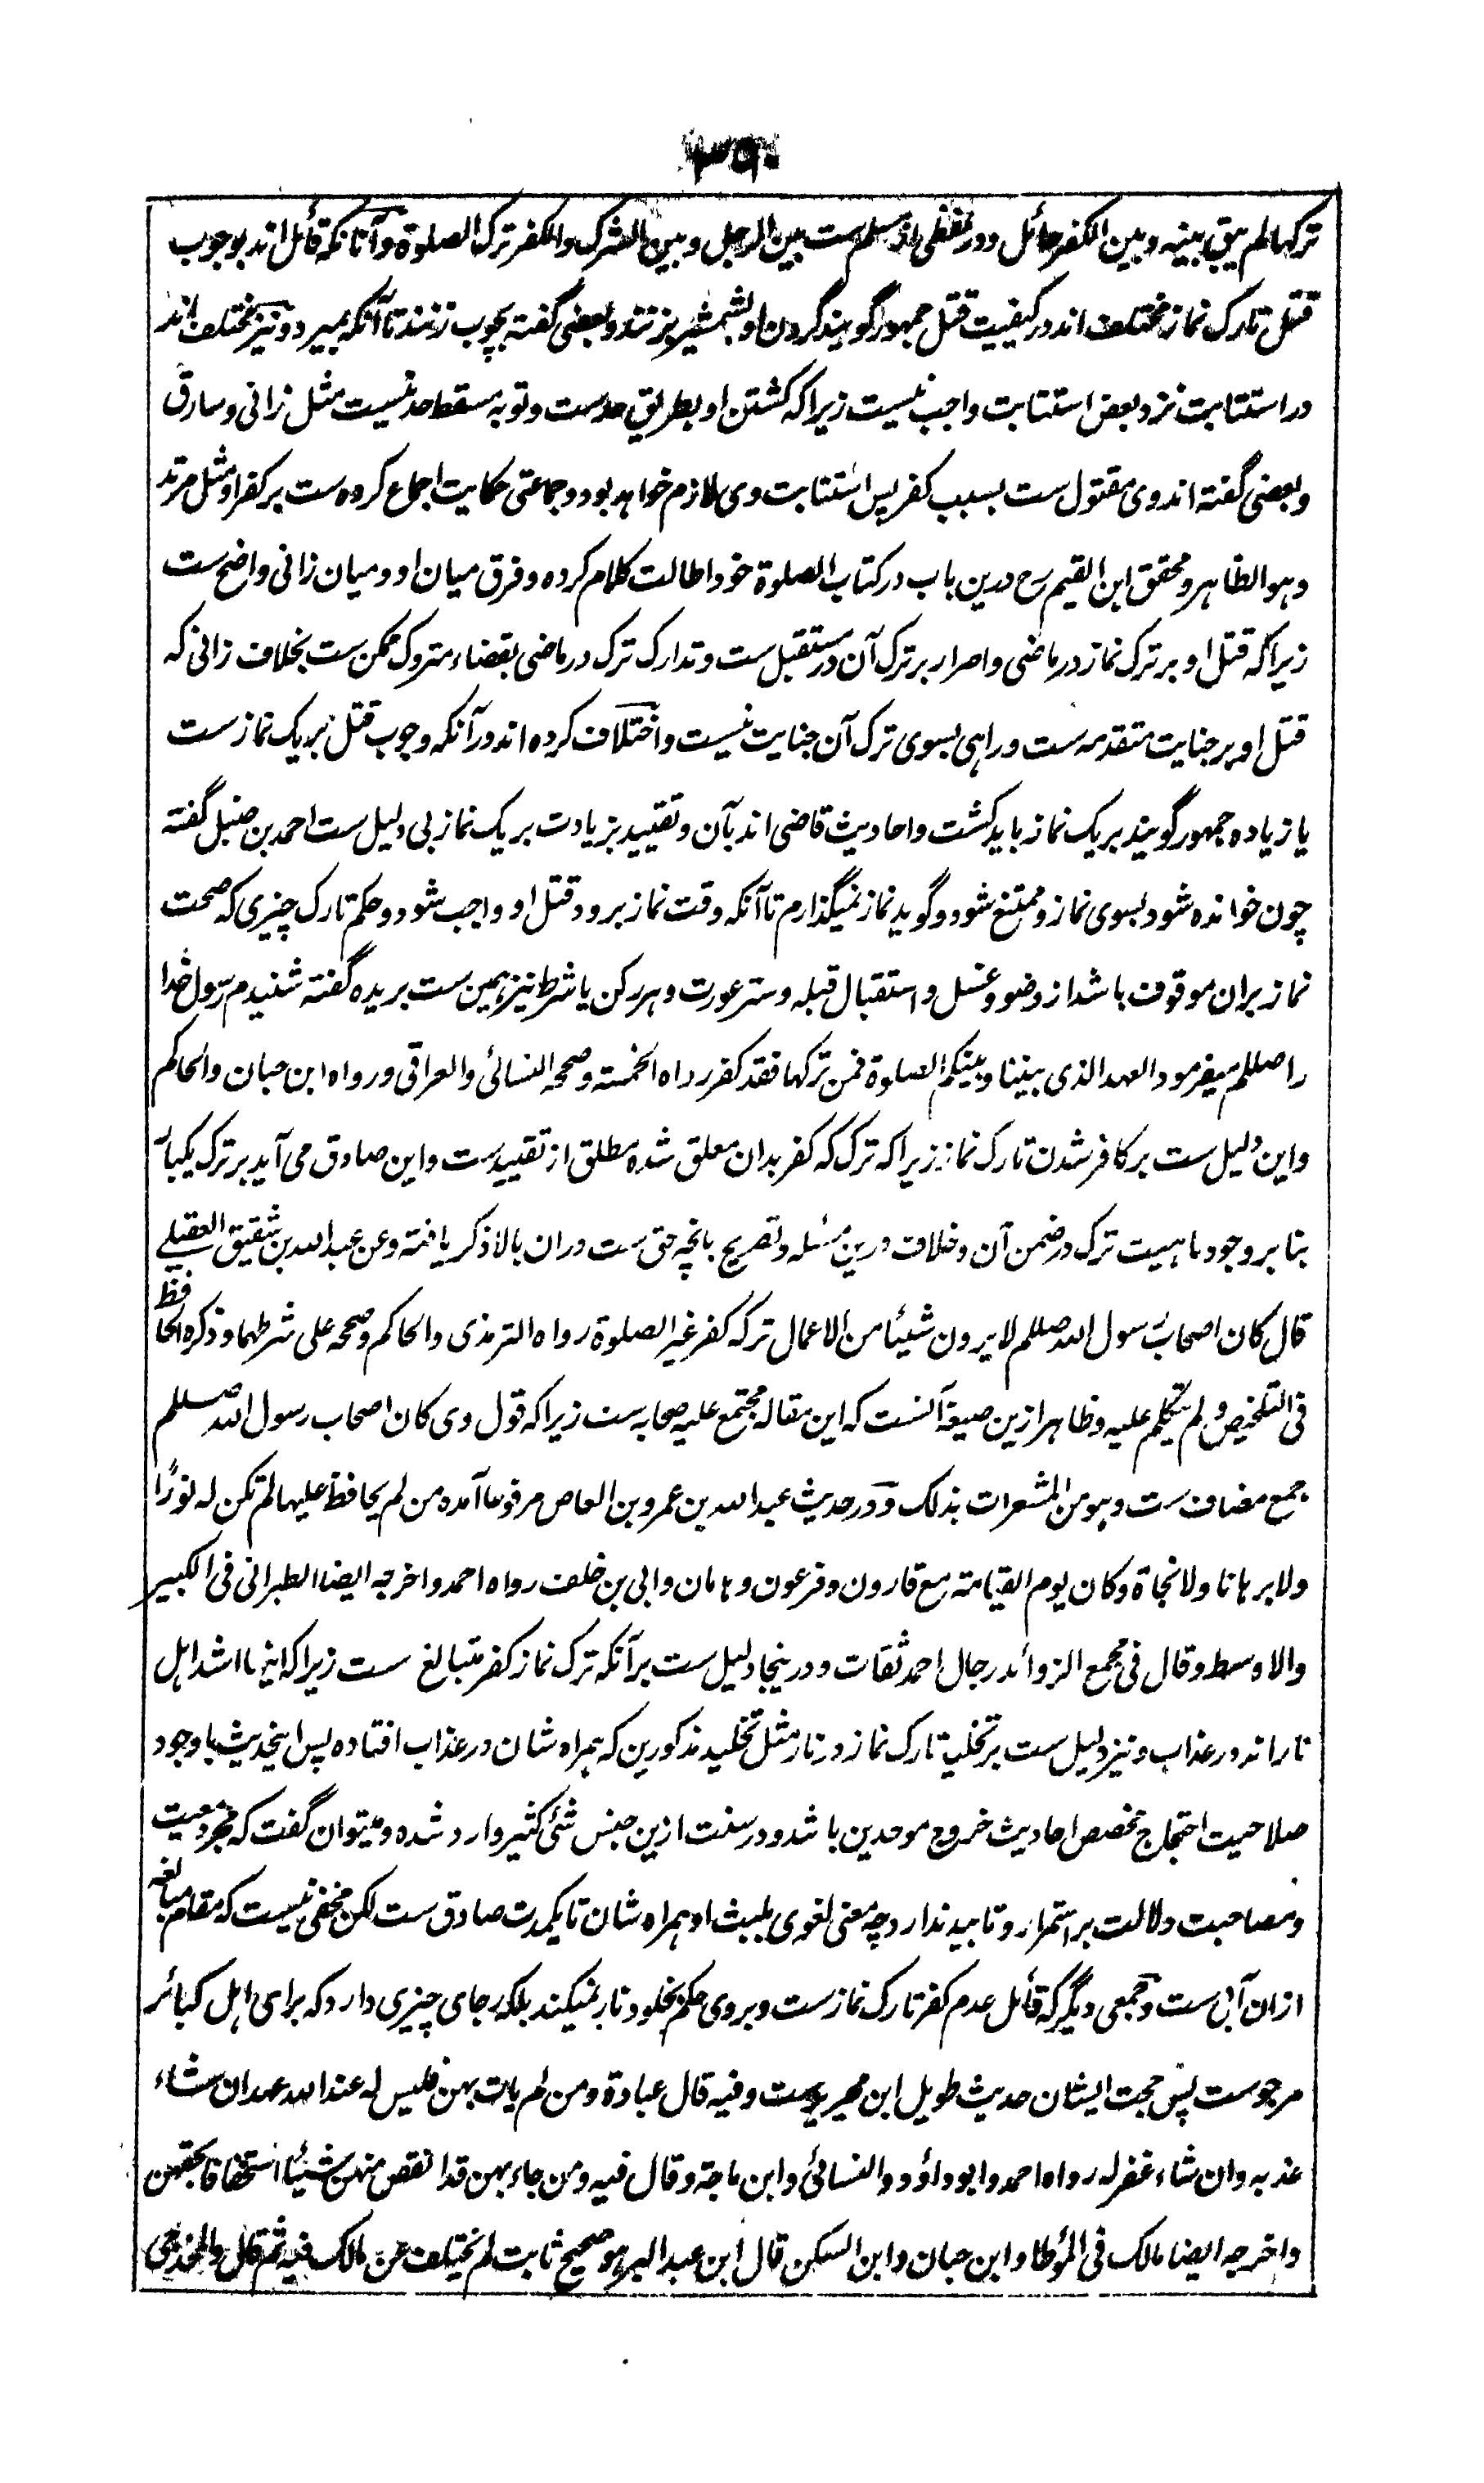 ۳۵۰
ترکها لم یبق بینه و بین الکفر حائل و در لفظی از مسلم ست بین الرجل و بین الشرک والکفر ترک الصلوة و آنانکه قائل اند بوجوب
قتل تارک نماز مختلف اند در کیفیت قتل جمهور گویند گردن او بشمشیر بزنند و بعضی گفته بچوب زنند تا آنکه بمیرد و نیز مختلف اند
در استتابت نزد بعض استتابت واجب نیست زیرا که کشتن او بطریق حد ست و توبه مسقط حد نیست مثل زانی و سارق
و بعضی گفته اند وی مقتول ست بسبب کفر پس استتابت وی لازم خواهد بود و جماعتی حکایت اجماع کرده ست بر کفر او مثل مرتد
و هو الظاهر و محقق ابن القیم رح درین باب در کتاب الصلوة خود اطالت کلام کرده و فرق میان او و میان زانی واضح ست
زیرا که قتل او بر ترک نماز در ماضی و اصرار بر ترک آن در مستقبل ست و تدارک ترک در ماضی بقضاء متروک ممکن ست بخلاف زانی که
قتل او بر جنایت متقدمه ست و راهی بسوی ترک آن جنایت نیست و اختلاف کرده اند در آنکه وجوب قتل بر یک نماز ست
یا زیاده جمهور گویند بر یک نماز باید کشت و احادیث قاضی اند بآن و تقیید بزیادت بر یک نماز بی دلیل ست احمد بن حنبل گفته
چون خوانده شود بسوی نماز و ممتنع شود و گوید نماز نمیگذارم تا آنکه وقت نماز برود قتل او واجب شود و حکم تارک چیزی که صحت
نماز بران موقوف باشد از وضو و غسل و استقبال قبله و ستر عورت و هر رکن یا شرط نیز همین ست بریده گفته شنیدم رسول خدا
را صللم میفرمود العهد الذی بیننا و بینکم الصلوة فمن ترکها فقد کفر رواه الخمسة و صححه النسائی والعراقی و رواه ابن حبان والحاکم
و این دلیل ست بر کافر شدن تارک نماز زیرا که ترک که کفر بدان معلق شده مطلق از تقیید ست و این صادق می آید بر ترک یکبار
بنا بر وجود ماهیت ترک در ضمن آن و خلاف درین مسئله و تصریح بانچه حق ست دران بالا ذکر یافته و عن عبد الله بن شقیق العقیلی
قال کان اصحاب رسول الله صللم لا یرون شیئا من الاعمال ترکه کفر غیر الصلوة رواه الترمذی والحاکم و صححه علی شرطهما و ذکره الحافظ
فی التلخیص و لم یتکلم علیه و ظاهر ازین صیغه آنست که این مقاله مجتمع علیه صحابه ست زیرا که قول وی کان اصحاب رسول الله صللم
جمع مضاف ست و هو من المشعرات بذلک و در حدیث عبد الله بن عمرو بن العاص مرفوعا آمده من لم یحافظ علیها لم تکن له نورًا
ولا برهانا ولا نجاة و کان یوم القیامة مع قارون و فرعون و هامان و ابی بن خلف رواه احمد و اخرجه ایضا الطبرانی فی الکبیر
والاوسط و قال فی مجمع الزوائد رجال احمد ثقات و درینجا دلیل ست بر آنکه ترک نماز کفر متبالغ ست زیرا که اینها اشد اهل
نار اند در عذاب و نیز دلیل ست بر تخلید تارک نماز در نار مثل تخلید مذکورین که همراه شان در عذاب افتاده پس اینحدیث باوجود
صلاحیت احتجاج مخصص احادیث خروج موحدین باشد و در سنت ازین جنس شئ کثیر وارد شده و میتوان گفت که مجرد معیت
و مصاحبت دلالت بر استمرار و تابید ندارد چه معنی لغوی بلبث او همراه شان تا یکمدت صادق ست لکن مخفی نیست که مقام مبالغه
ازان آبی ست و جمعی دیگر که قائل عدم کفر تارک نماز ست و بر وی حکم بخلود نار نمیکند بلکه رجای چیزی دارد که برای اهل کبائر
مرجوست پس حجت ایشان حدیث طویل ابن محیریز ست و فیه قال عبادة و من لم یات بهن فلیس له عند الله عهد ان شاء
عذبه و ان شاء غفر له رواه احمد و ابو داؤد والنسائی و ابن ماجة و قال فیه و من جاء بهن قد انتقص منهن شیئا استخفافا بحقهن
و اخرجه ایضا مالک فی المؤطا و ابن حبان و ابن السکن قال ابن عبد البر هو صحیح ثابت لم یختلف عن مالک فیه ثم قال والمخدجی